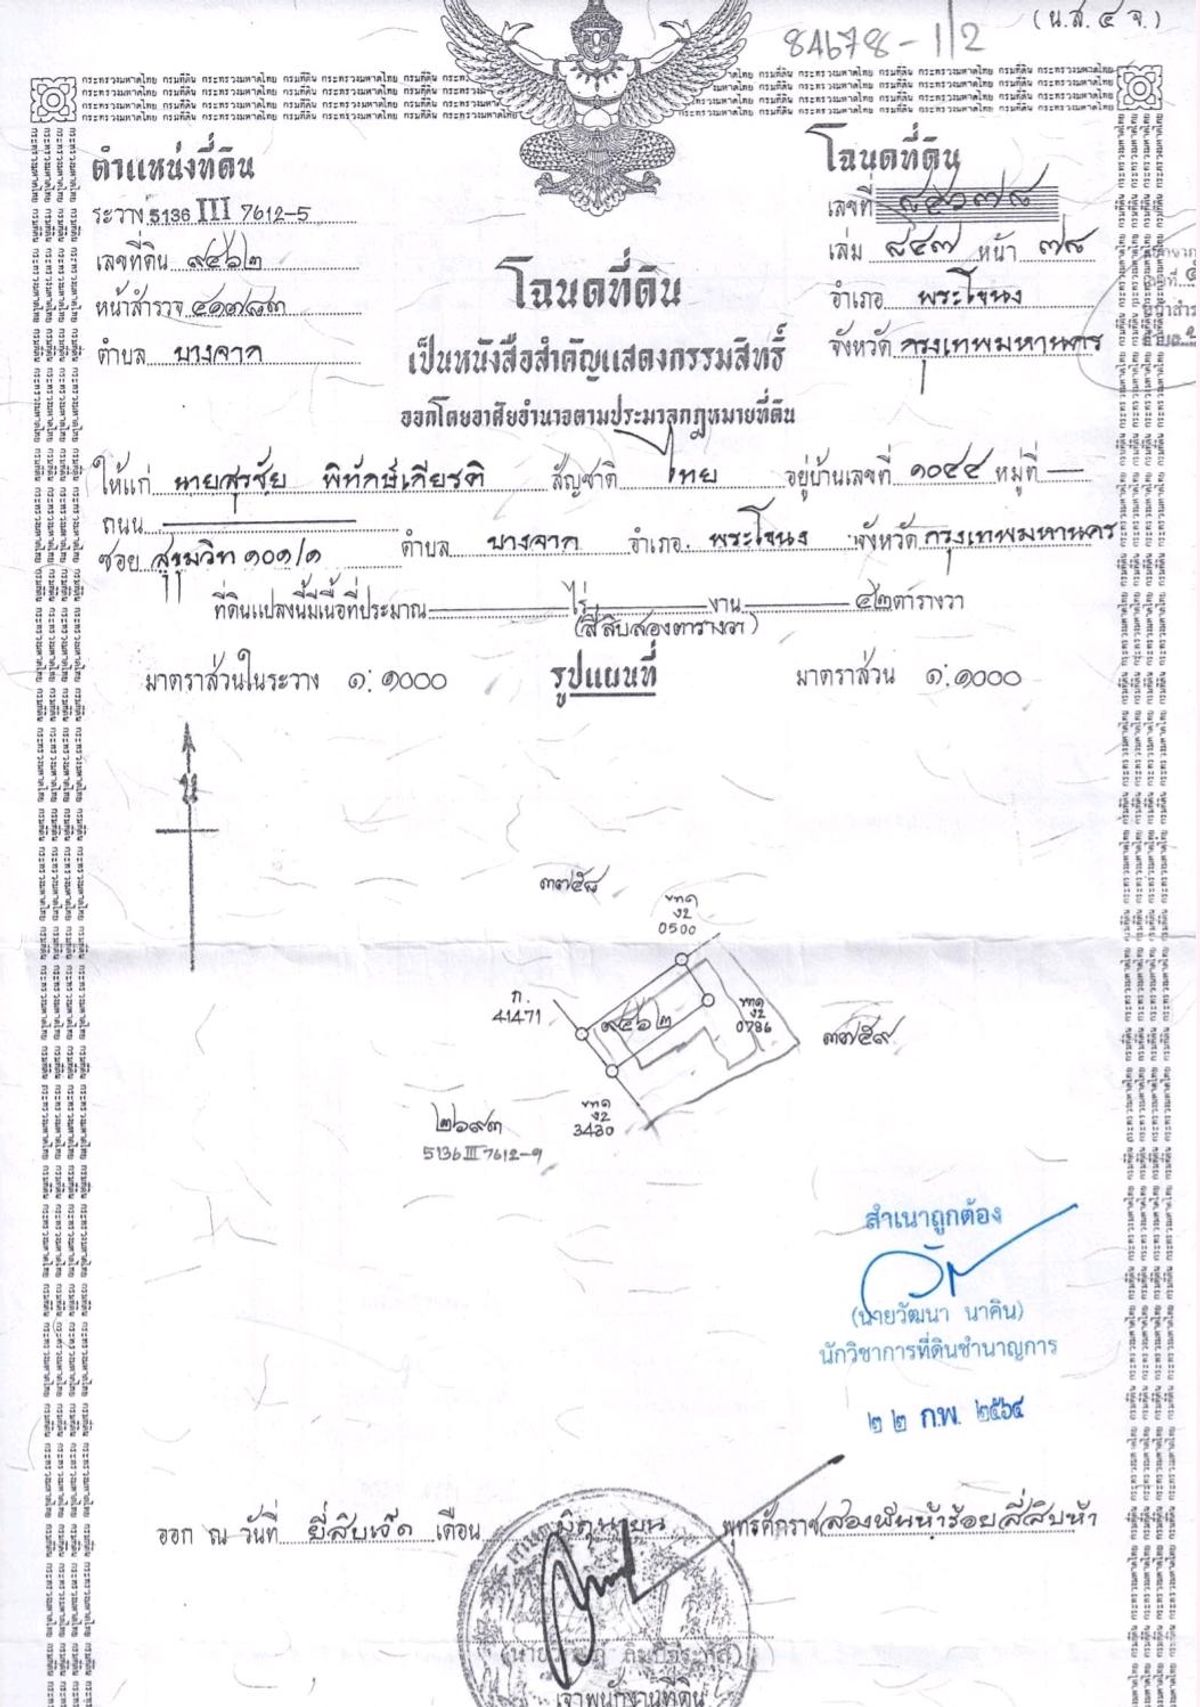 (น.ส.๔ จ.)
84678-1/2
ตำแหน่งที่ดิน
โฉนดที่ดิน
ระวาง 5136 III 7612-5
เลขที่ ๘๔๖๗๘
เลขที่ดิน ๙๔๖๒
เล่ม ๘๔๗ หน้า ๗๘
โฉนดที่ดิน
หน้าสำรวจ
อำเภอ พระโขนง
ตำบล บางจาก
จังหวัด กรุงเทพมหานคร
เป็นหนังสือสำคัญแสดงกรรมสิทธิ์
ออกโดยอาศัยอำนาจตามประมวลกฎหมายที่ดิน
ให้แก่ นายสุรชัย พิทักษ์เกียรติ สัญชาติ ไทย อยู่บ้านเลขที่ ๑๐๔๔ หมู่ที่ —
ถนน —
ซอย สุขุมวิท ๑๐๑/๑ ตำบล บางจาก อำเภอ พระโขนง จังหวัด กรุงเทพมหานคร
ที่ดินแปลงนี้มีเนื้อที่ประมาณ — ไร่ — งาน — ๔๒ ตารางวา
(สี่สิบสองตารางวา)
มาตราส่วนในระวาง ๑:๑๐๐๐ รูปแผนที่ มาตราส่วน ๑:๑๐๐๐
น
๓๗๕๘
ง2
0500
ก.
41471
๙๔๖๒
ง2
0786
๓๗๕๙
ง2
3430
๒๖๙๓
5136 III 7612-9
สำเนาถูกต้อง
(นายวัฒนา นาคิน)
นักวิชาการที่ดินชำนาญการ
๒๒ ก.พ. ๒๕๖๔
ออก ณ วันที่ ยี่สิบเอ็ด เดือน มิถุนายน พุทธศักราช สองพันห้าร้อยสี่สิบห้า
เจ้าพนักงานที่ดิน